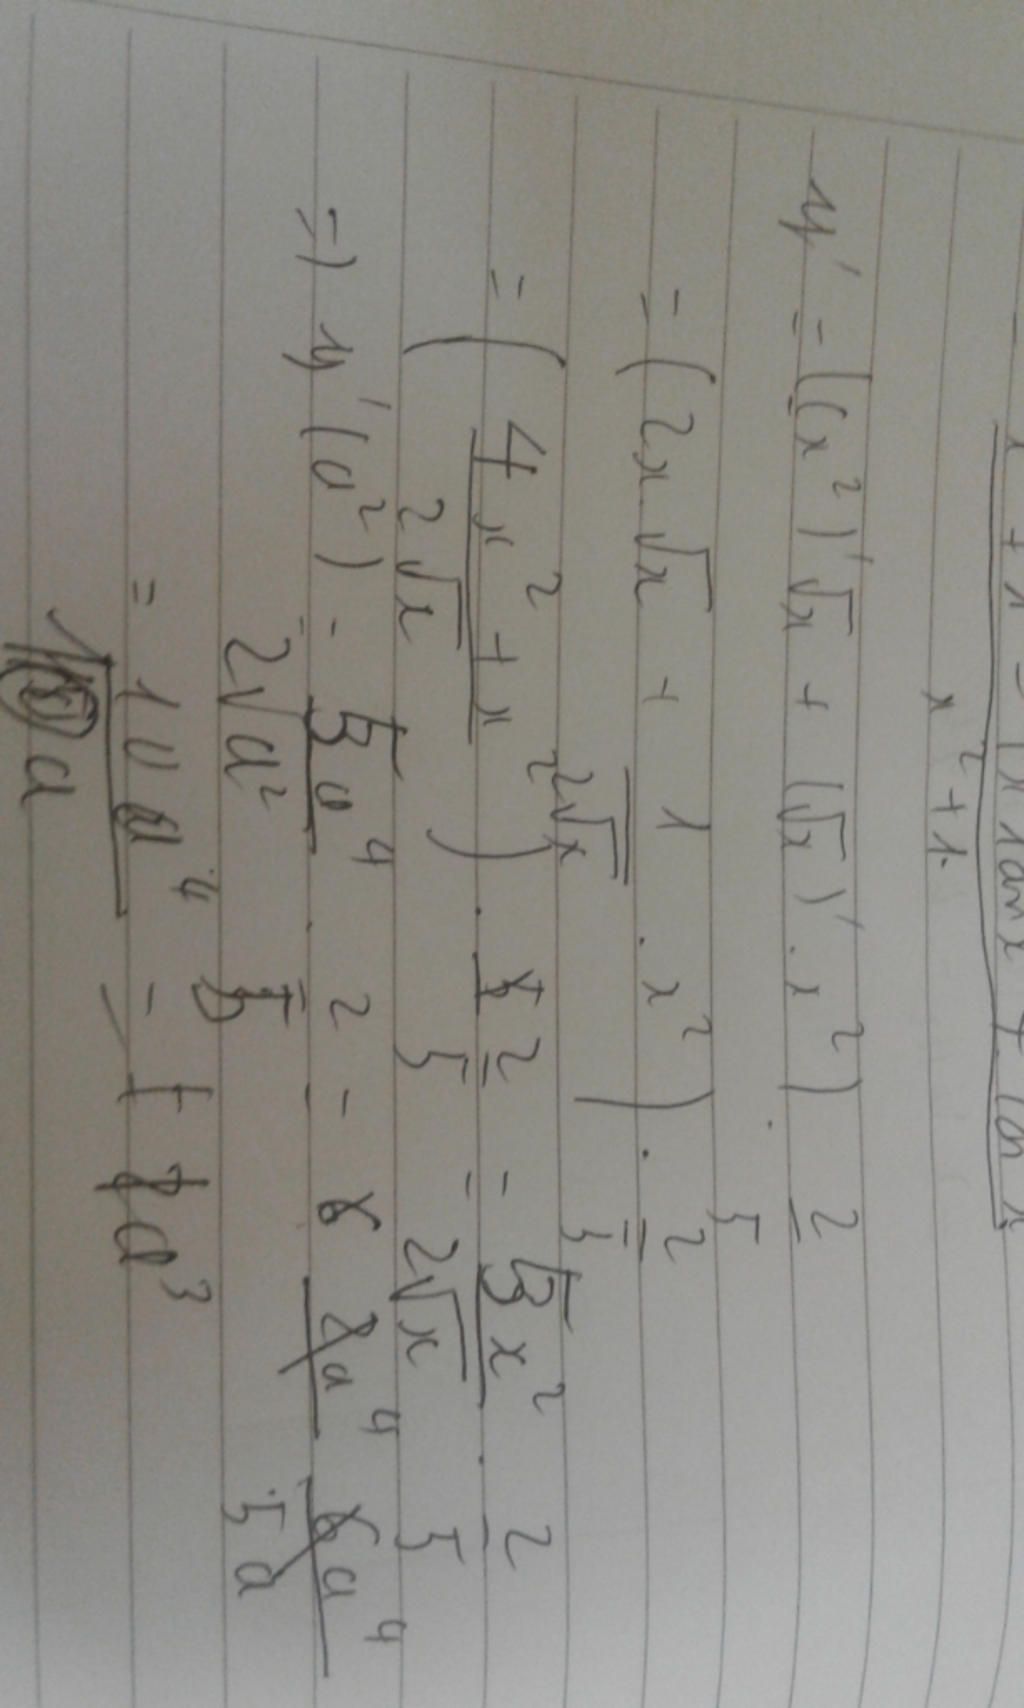 x² + 1
y' = ((x²)'√x + (√x)' . x²) . 2/5
= (2x√x + 1/2√x . x²) . 2/5
= (4x² + x²/2√x) . 2/5 = 5x²/2√x . 2/5
=) y'(a²) = 5a⁴/2√a² . 2/5 =
= 10a⁴/10a = a³